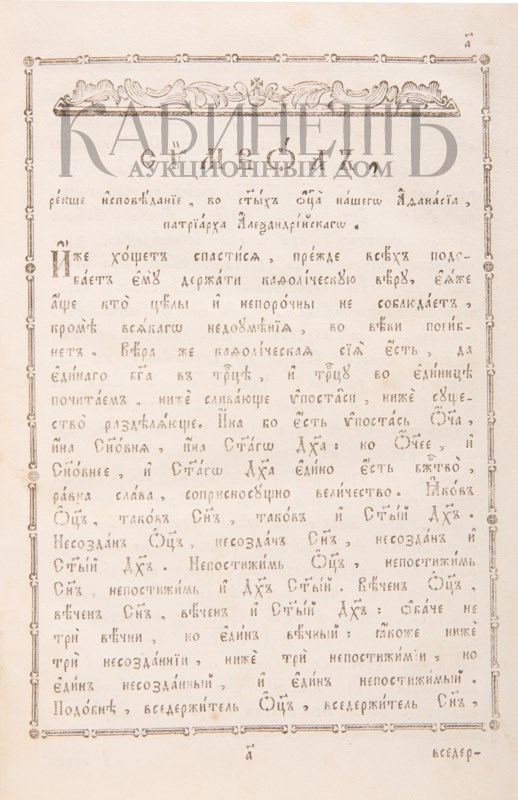 а҃
КАБИНЕТЪ
АУКЦИОННЫЙ ДОМ
СѶМВО́ЛЪ,
ре́кше и҆сповѣ́данїе, во ст҃ы́хъ ѻ҆ц҃а̀ на́шегѡ А҆ѳана́сїа,
патрїа́рха А҆леѯандрі́йскагѡ.
И҆́же хо́щетъ спасти́сѧ, пре́жде всѣ́хъ подо-
ба́етъ є҆мꙋ̀ держа́ти каѳолі́ческꙋю вѣ́рꙋ, є҆ѧ́же
а҆́ще кто̀ цѣ́лы и҆ непоро́чны не соблюда́етъ,
кромѣ̀ всѧ́кагѡ недоꙋмѣ́нїѧ, во вѣ́ки поги́б-
нетъ. Вѣ́ра же каѳолі́ческаѧ сїѧ̀ є҆́сть, да
є҆ди́наго бг҃а въ трⷪ҇цѣ, и҆ трⷪ҇цꙋ во є҆ди́ницѣ
почита́емъ, нижѐ слива́юще ѵ҆поста̑си, нижѐ сꙋще-
ство̀ раздѣлѧ́юще. И҆́на бо є҆́сть ѵ҆поста́сь Ѻ҆́ч҃а,
и҆́на Сн҃о́внѧ, и҆́на Ст҃а́гѡ Дх҃а: но Ѻ҆́ч҃ее, и҆
Сн҃о́внее, и҆ Ст҃а́гѡ Дх҃а є҆ди́но є҆́сть бжⷭ҇тво̀,
ра́вна сла́ва, соприсносꙋ́щно вели́чество. Ꙗ҆ко́въ
Ѻ҆ц҃ъ, тако́въ Сн҃ъ, тако́въ и҆ Ст҃ы́й Дх҃ъ.
Несозда́нъ Ѻ҆ц҃ъ, несозда́нъ Сн҃ъ, несозда́нъ и҆
Ст҃ы́й Дх҃ъ. Непостижи́мь Ѻ҆ц҃ъ, непостижи́мь
Сн҃ъ, непостижи́мь и҆ Дх҃ъ Ст҃ы́й. Вѣ́ченъ Ѻ҆ц҃ъ,
вѣ́чен Сн҃ъ, вѣ́чен и҆ Ст҃ы́й Дх҃ъ: Ѻ҆ба́че не
трѝ вѣ̑чни, но є҆ди́нъ вѣ́чный: ꙗ҆́коже нижѐ
трѝ несозда́ннїи, нижѐ трѝ непостижи́мїи, но
є҆ди́нъ несозда́нный, и҆ є҆ди́нъ непостижи́мый.
Подо́бнѣ, вседержи́тель Ѻ҆ц҃ъ, вседержи́тель Сн҃ъ,
а҃
вседер-